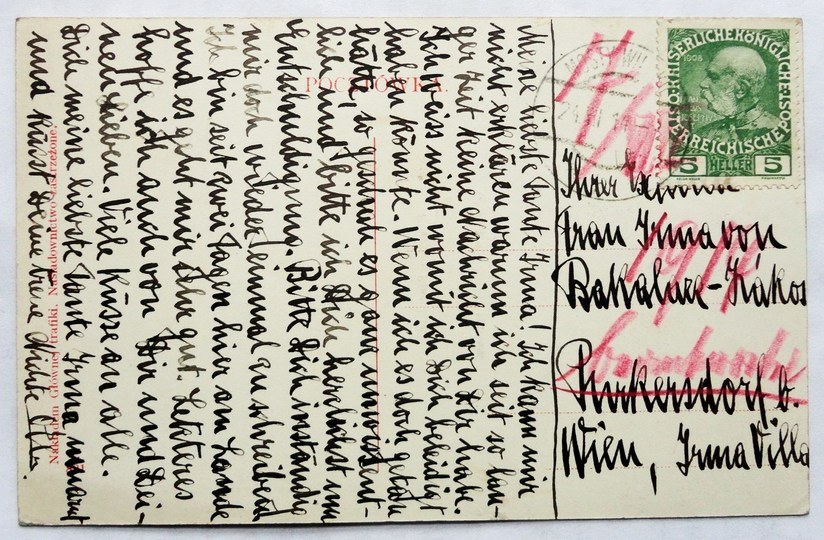 POCZTÓWKA.
Meine liebste Tante Irma! Ich kann mir
nicht erklären warum ich seit so lan-
ger Zeit keine Nachricht von Dir habe.
Ich weiss nicht womit ich Dich beleidigt
haben könnte. Wenn ich es doch getan
hätte, so geschah es ganz unwissent-
lich und bitte ich Dich herzlichst um
Entschuldigung. Bitte Dich inständig
mir doch wieder einmal zu schreiben.
Ich bin seit zwei Tagen hier am Lande
und es geht mir sehr gut. Letzteres
hoffe ich auch von Dir und Dei-
nen Lieben. Viele Küsse an alle.
Dich meine liebste Tante Irma umarmt
und küsst Deine treue Nichte
Nakładem Głównej trafiki. Naśladownictwo zastrzeżone.
KAISERLICHE KÖNIGLICHE
ÖSTERREICHISCHE POST
1908
5 HELLER 5
Ihrer
Frau Irma von
Bakalovic-Kákos
1914
Purkersdorf b.
Wien, Irma Villa